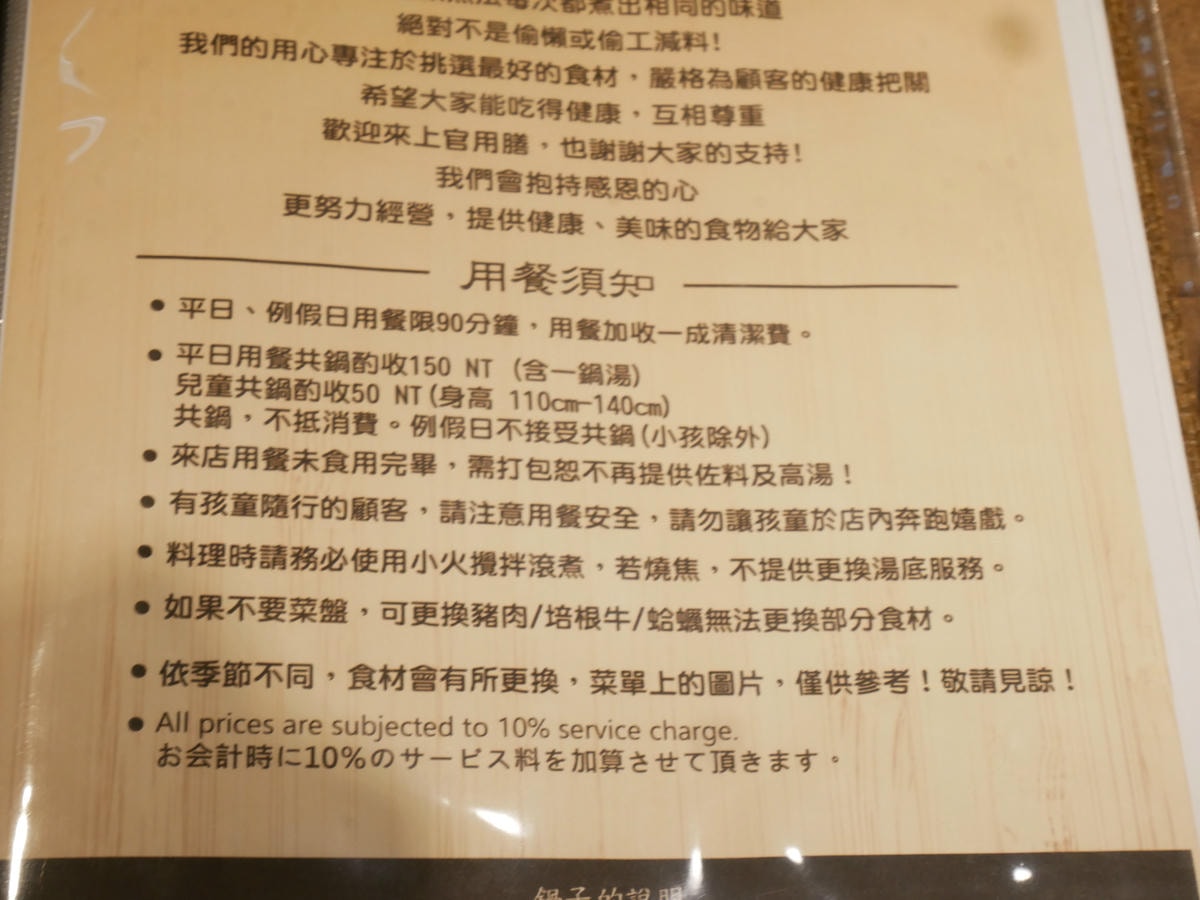 都煮出相同的味道
絕對不是偷懶或偷工減料!
我們的用心專注於挑選最好的食材，嚴格為顧客的健康把關
希望大家能吃得健康，互相尊重
歡迎來上官用膳，也謝謝大家的支持!
我們會抱持感恩的心
更努力經營，提供健康、美味的食物給大家
用餐須知
• 平日、例假日用餐限90分鐘，用餐加收一成清潔費。
• 平日用餐共鍋酌收150 NT (含一鍋湯)
兒童共鍋酌收50 NT(身高 110cm-140cm)
共鍋，不抵消費。例假日不接受共鍋(小孩除外)
• 來店用餐未食用完畢，需打包恕不再提供佐料及高湯!
• 有孩童隨行的顧客，請注意用餐安全，請勿讓孩童於店內奔跑嬉戲。
• 料理時請務必使用小火攪拌滾煮，若燒焦，不提供更換湯底服務。
• 如果不要菜盤，可更換豬肉/培根牛/蛤蠣無法更換部分食材。
• 依季節不同，食材會有所更換，菜單上的圖片，僅供參考!敬請見諒!
• All prices are subjected to 10% service charge.
お会計時に10%のサービス料を加算させて頂きます。
鍋子的說明